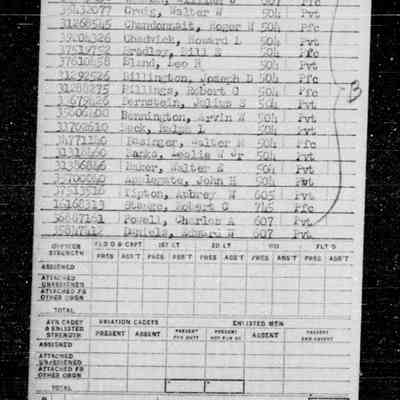 Pfc
39433077 Craig, Walter W 504 Pvt
31268545 Chandonnait, Roger N 504 Pfc
39204326 Chadwick, Howard L 504 Pvt
37519752 Bradley, Bill E 504 Pfc
37610458 Bland, Leo H 504 Pvt
31292526 Billington, Joseph D 504 Pfc
31288275 Billings, Robert G 504 Pfc
32679426 Bernstein, Julius S 504 Pvt
35606400 Bennington, Arvin W 504 Pvt
33702610 Beck, Ralph L 504 Pvt
34771140 Basinger, Walter M 504 Pfc
31318460 Banks, Leslie W Jr 504 Pvt
31386846 Baker, Walter E 504 Pvt
Applegate, John H 504 Pvt
37513516 Tipton, Aubrey W 605 Pvt
16168313 Stamps, Robert C 745 Pfc
36887161 Powell, Charles A 607 Pvt
Daniels, Edward W 607 Pvt
B
OFFICER STRENGTH FLD O & CAPT 1ST LT 2D LT WO FLT O
PRES ABS'T PRES ABS'T PRES ABS'T PRES ABS'T PRES ABS'T
ASSIGNED
ATTACHED UNASSIGNED
ATTACHED FR OTHER ORGN
TOTAL
AVN CADET & ENLISTED STRENGTH AVIATION CADETS ENLISTED MEN
PRESENT ABSENT PRESENT FOR DUTY PRESENT NOT FOR DY ABSENT PRESENT AND ABSENT
ASSIGNED
ATTACHED UNASSIGNED
ATTACHED FR OTHER ORGN
TOTAL